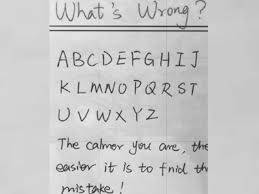 What's Wrong?
A B C D E F G H I J
K L M N O P Q R S T
U V W X Y Z
The calmer you are, the
easier it is to fnid th
mistake!